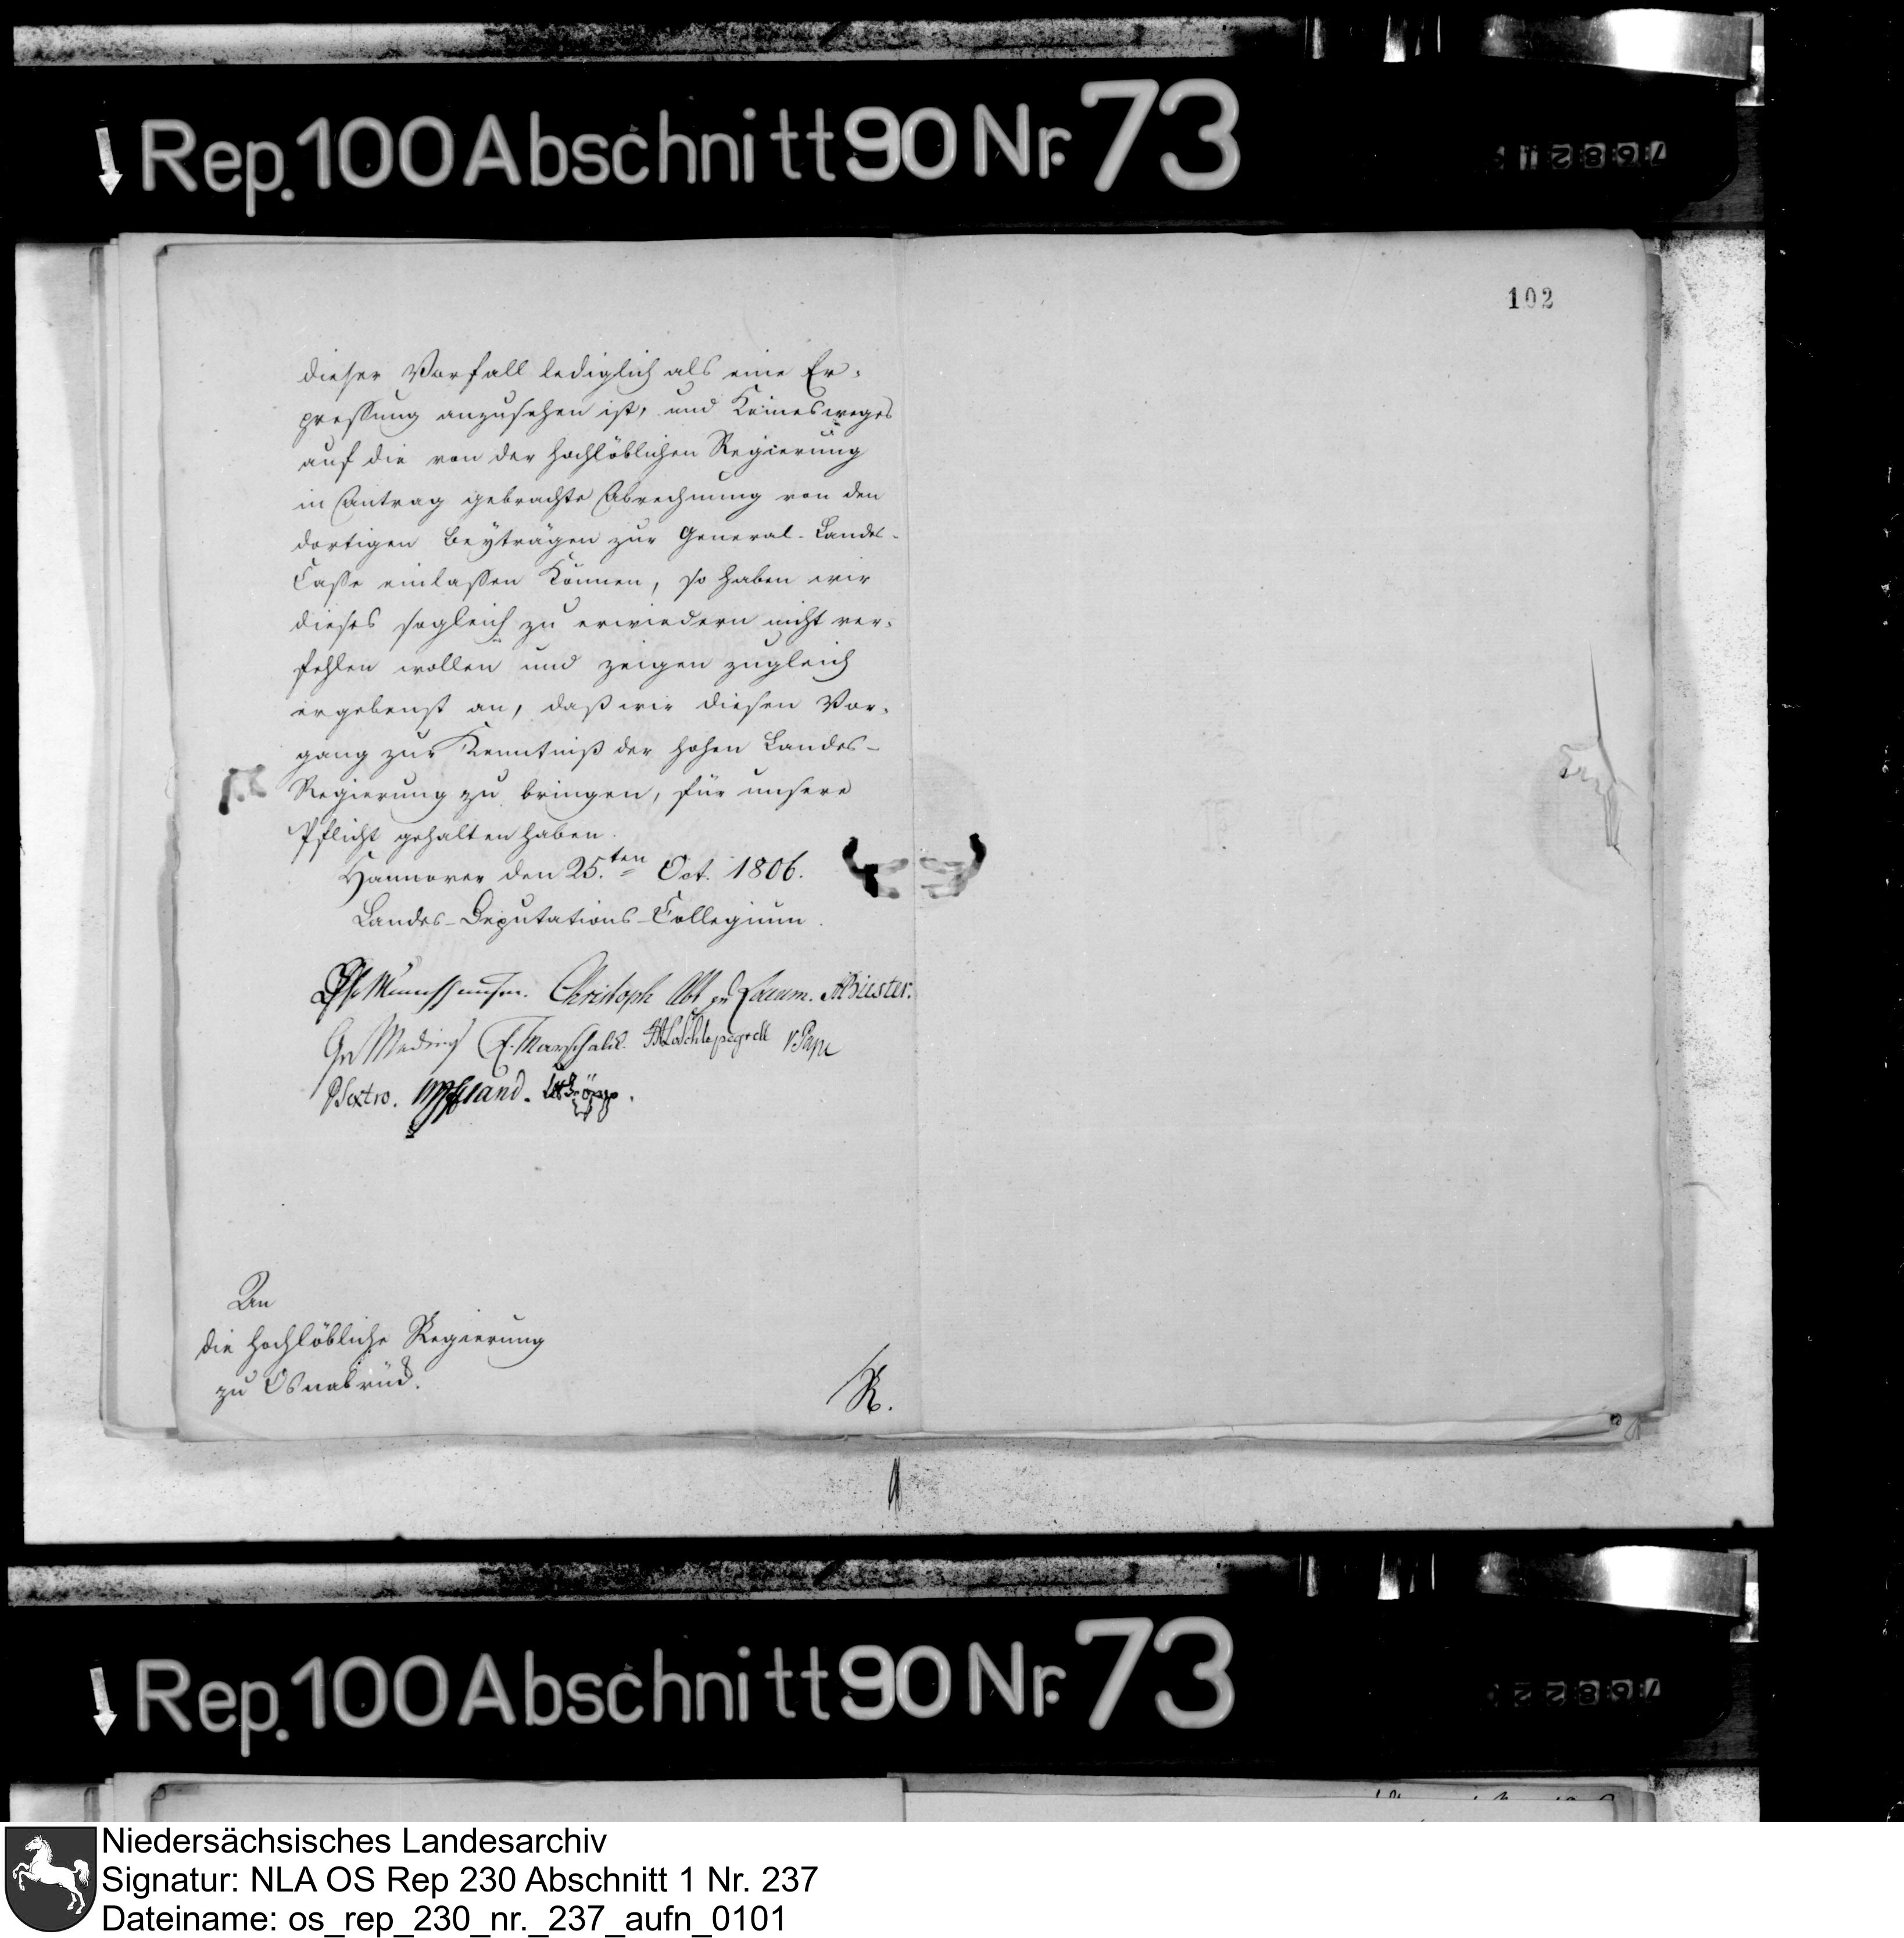 Rep. 100 Abschnitt 90 Nr. 73
102
dieser Vorfall lediglich als eine Er-
pressung anzusehen ist, und Keinesweges
auf die von der Hochlöblichen Regierung
in Antrag gebrachte Abrechnung von den
dortigen Beyträgen zur General-Landes-
Casse einlassen Können, so haben wir
dieses sogleich zu erwiedern nicht ver-
fehlen wollen und zeigen zugleich
ergebenst an, daß wir diesen Vor-
gang zur Kenntniß der hohen Landes-
Regierung zu bringen, für unsere
Pflicht gehalten haben.
Hannover den 25.ten Oct. 1806.
Landes-Deputations-Collegium.
Münchhausen. Christoph Abt zu Loccum. Biester.
Meding E. Marschalck. Schlepegrell vPape
Sextro. Iffland.
An
die Hochlöbliche Regierung
zu Osnabrück.
R.
Rep. 100 Abschnitt 90 Nr. 73
Niedersächsisches Landesarchiv
Signatur: NLA OS Rep 230 Abschnitt 1 Nr. 237
Dateiname: os_rep_230_nr._237_aufn_0101